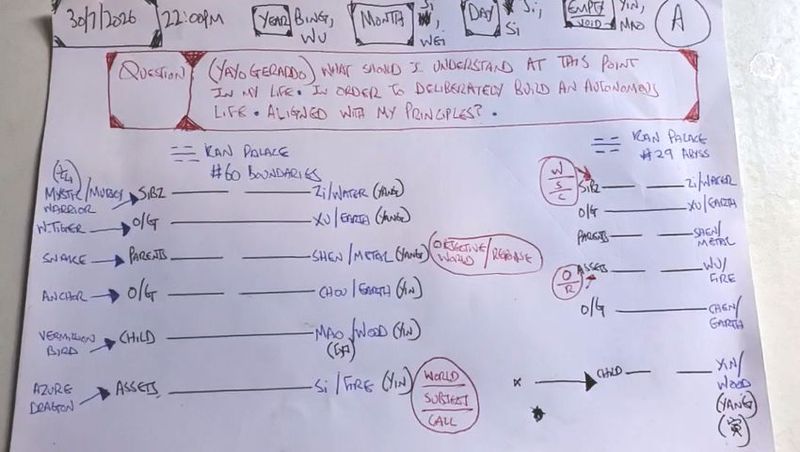 30/7/2026 22:00PM YEAR BING, WU MONTH Ji, WEI DAY Ji, Si EMPTY VOID YIN, MAO A
QUESTION (YAYO GERARDO) WHAT SHOULD I UNDERSTAND AT THIS POINT
IN MY LIFE. IN ORDER TO DELIBERATELY BUILD AN AUTONOMOUS
LIFE. ALIGNED WITH MY PRINCIPLES?.
KAN PALACE
#60 BOUNDARIES
MYSTIC/MURKY WARRIOR SIBZ Zi/WATER (YANG)
W.TIGER O/G XU/EARTH (YANG)
SNAKE PARENTS SHEN/METAL (YANG) OBJECTIVE WORLD/RESPONSE
ANCHOR O/G CHOU/EARTH (YIN)
VERMILLION BIRD CHILD MAO/WOOD (YIN)
(卯)
AZURE DRAGON ASSETS Si/FIRE (YIN) WORLD SUBJECT CALL
KAN PALACE
#29 ABYSS
W S C SIBZ Zi/WATER
O/G XU/EARTH
PARENTS SHEN/METAL
O R ASSETS WU/FIRE
O/G CHEN/EARTH
x CHILD YIN/WOOD
(YANG)
(寅)